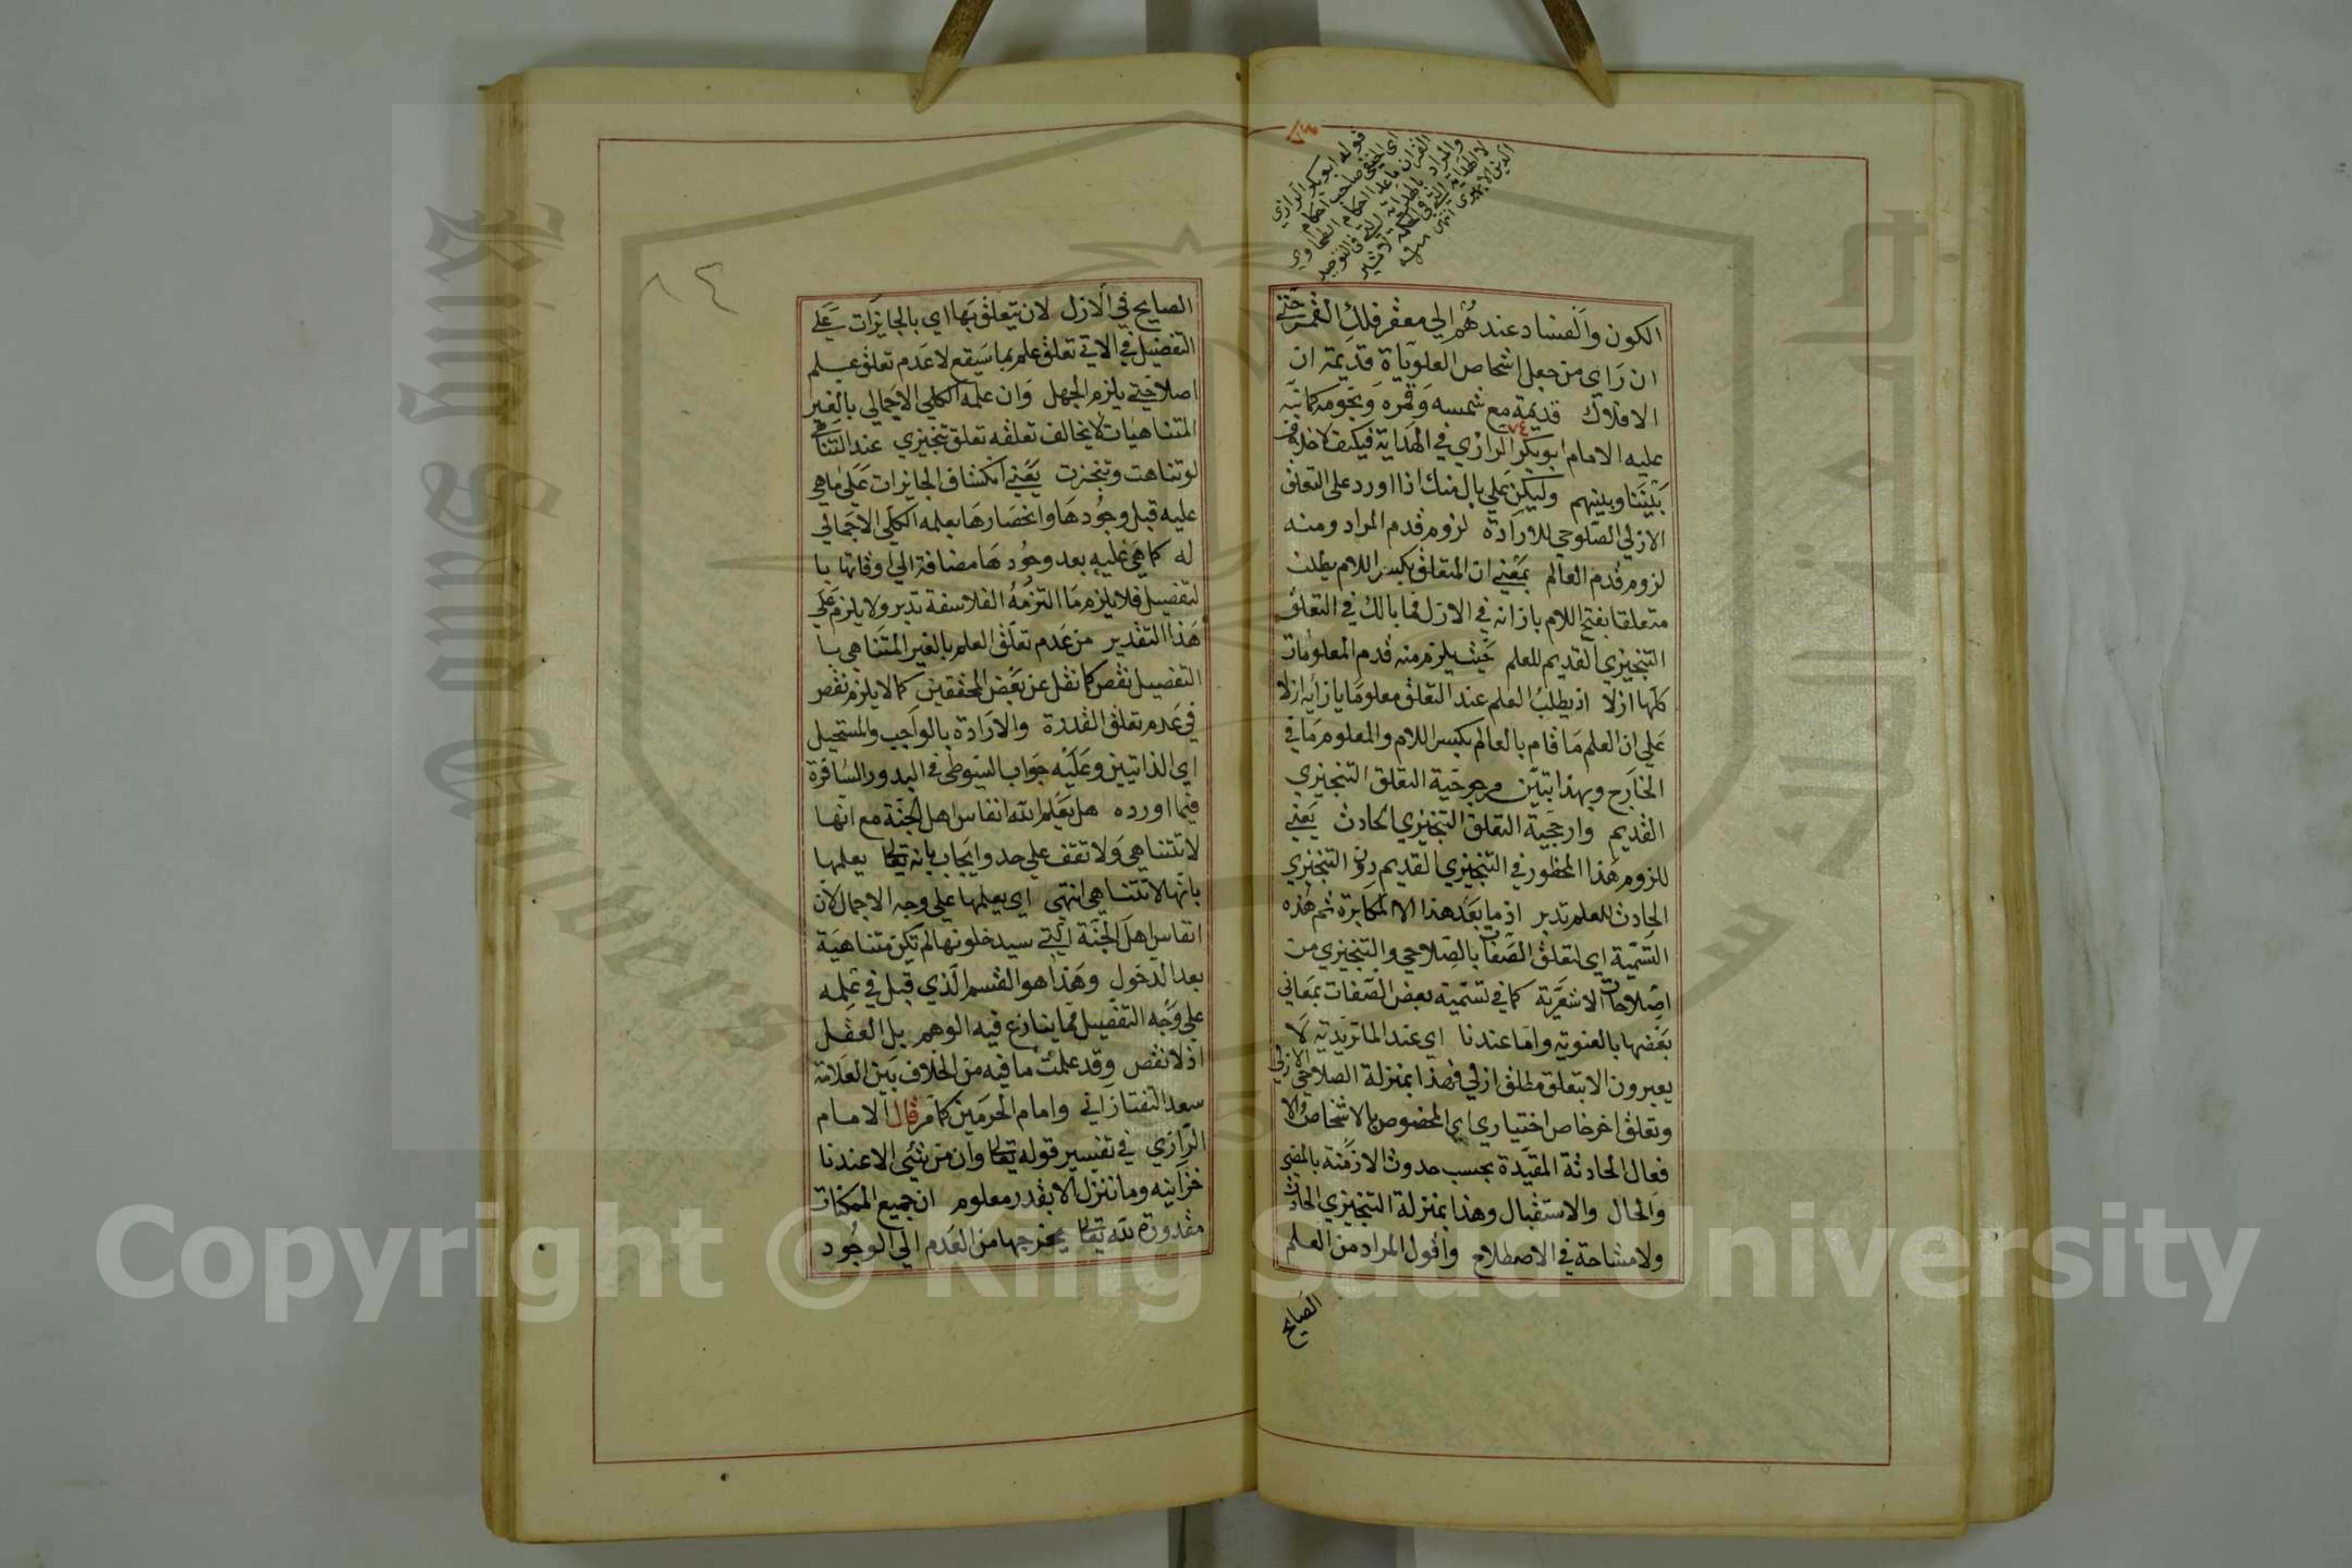 ٧٤
قوله ابو بكر الرازي
اي الحنفي صاحب احكام
القران ما عدا احكام الطحاوي
والمراد بالهداية التي في التوحيد
لا الهداية التي في الحكمة لاثير
الدين الابهري انتهى منه
الكون والفساد عندهم الي مقعر فلك القمر حتي
ان راي من جعل اشخاص العلويات قديمة ان
الافلاك قديمة مع شمسه وقمره ونجومه كما نبه
٧٤
عليه الامام ابو بكر الرازي في الهداية فيكف لا خلاف
بيننا وبينهم وليكن علي بال منك اذا اورد على التعلق
الازلي الصلوحي للارادة لزوم قدم المراد ومنه
لزوم قدم العالم بمعني ان المتعلق بكسر اللام يطلب
متعلقا بفتح اللام بازائه في الازل فما بالك في التعلق
التنجيزي القديم للعلم حيث يلزم منه قدم المعلومات
كلها ازلا اذ يطلب العلم عند التعلق معلوما بازائه ازلا
علي ان العلم ما قام بالعالم بكسر اللام والمعلوم ما في
الخارج وبهذا تبين مرجوحية التعلق التنجيزي
القديم وارجحية التعلق التنجيزي الحادث يعني
للزوم هذا المحظور في التنجيزي القديم دون التنجيزي
الحادث للعلم تدبر اذ ما بعد هذا الا المكابرة ثم هذه
التسمية اي لتعلق الصفات بالصلاحي والتنجيزي من
اصلاحات الاشعرية كما في تسمية بعض الصفات بمعاني
بعضها بالمعنوية واما عندنا اي عند الماتريدية لا
يعبرون الا بتعلق مطلق ازلي فهذا بمنزلة الصلاحي الازلي
وتعلق اخر خاص اختياري اي المخصوص بالاشخاص والا
فعال الحادثة المقيدة بحسب حدوث الازمنة بالمضي
والحال والاستقبال وهذا بمنزلة التنجيزي الحادث
ولا مشاحة في الاصطلاح واقول المراد من العلم
الصايح
٨٤
الصايح في الازل لان يتعلق بها اي بالجايزات علي
التفضيل في الاتي تعلق علم بما سيقع لا عدم تعلق علم
اصلا حتي يلزم الجهل وان علمه الكلي الاجمالي بالغير
المتناهيات لا يخالف تعلقه تعلق تنجيزي عند التناهي
لو تناهت وتنجزت يعني انكشاف الجايزات علي ما هي
عليه قبل وجودها وانحصارها بعلمه الكلي الاجمالي
له كما هي عليه بعد وجودها مضافة الي اوقاتها با
لتفضيل فلا يلزم ما التزمه الفلاسفة تدبر ولا يلزم علي
هذا التقدير من عدم تعلق العلم بالغير المتناهي با
التفصيل نقص كما نقل عن بعض المحققين كما لا يلزم نقص
في عدم تعلق القدرة والارادة بالواجب والمستحيل
اي الذاتيين وعليه جواب السيوطي في البدور السافرة
فيما اورده هل يعلم الله انفاس اهل الجنة مع انها
لا تتناهي ولا تقف علي حد وايجاب بانه تعالى يعلمها
بانها لا تتناهي انتهي اي يعلمها علي وجه الاجمال لان
انفاس اهل الجنة التي سيدخلونها لم تكن متناهية
بعد الدخول وهذا هو القسم الذي قبل في علمه
علي وجه التفصيل مما ينازع فيه الوهم بل العقل
اذ لا نقص وقد علمت ما فيه من الخلاف بين العلامة
سعد التفتازاني وامام الحرمين كما مر قال الامام
الرازي في تفسير قوله تعالى وان من شئي الا عندنا
خزاينه وما ننزله الا بقدر معلوم ان جميع الممكنات
مقدورة لله تعالى يخرجها من العدم الي الوجود
Copyright © King Saud University